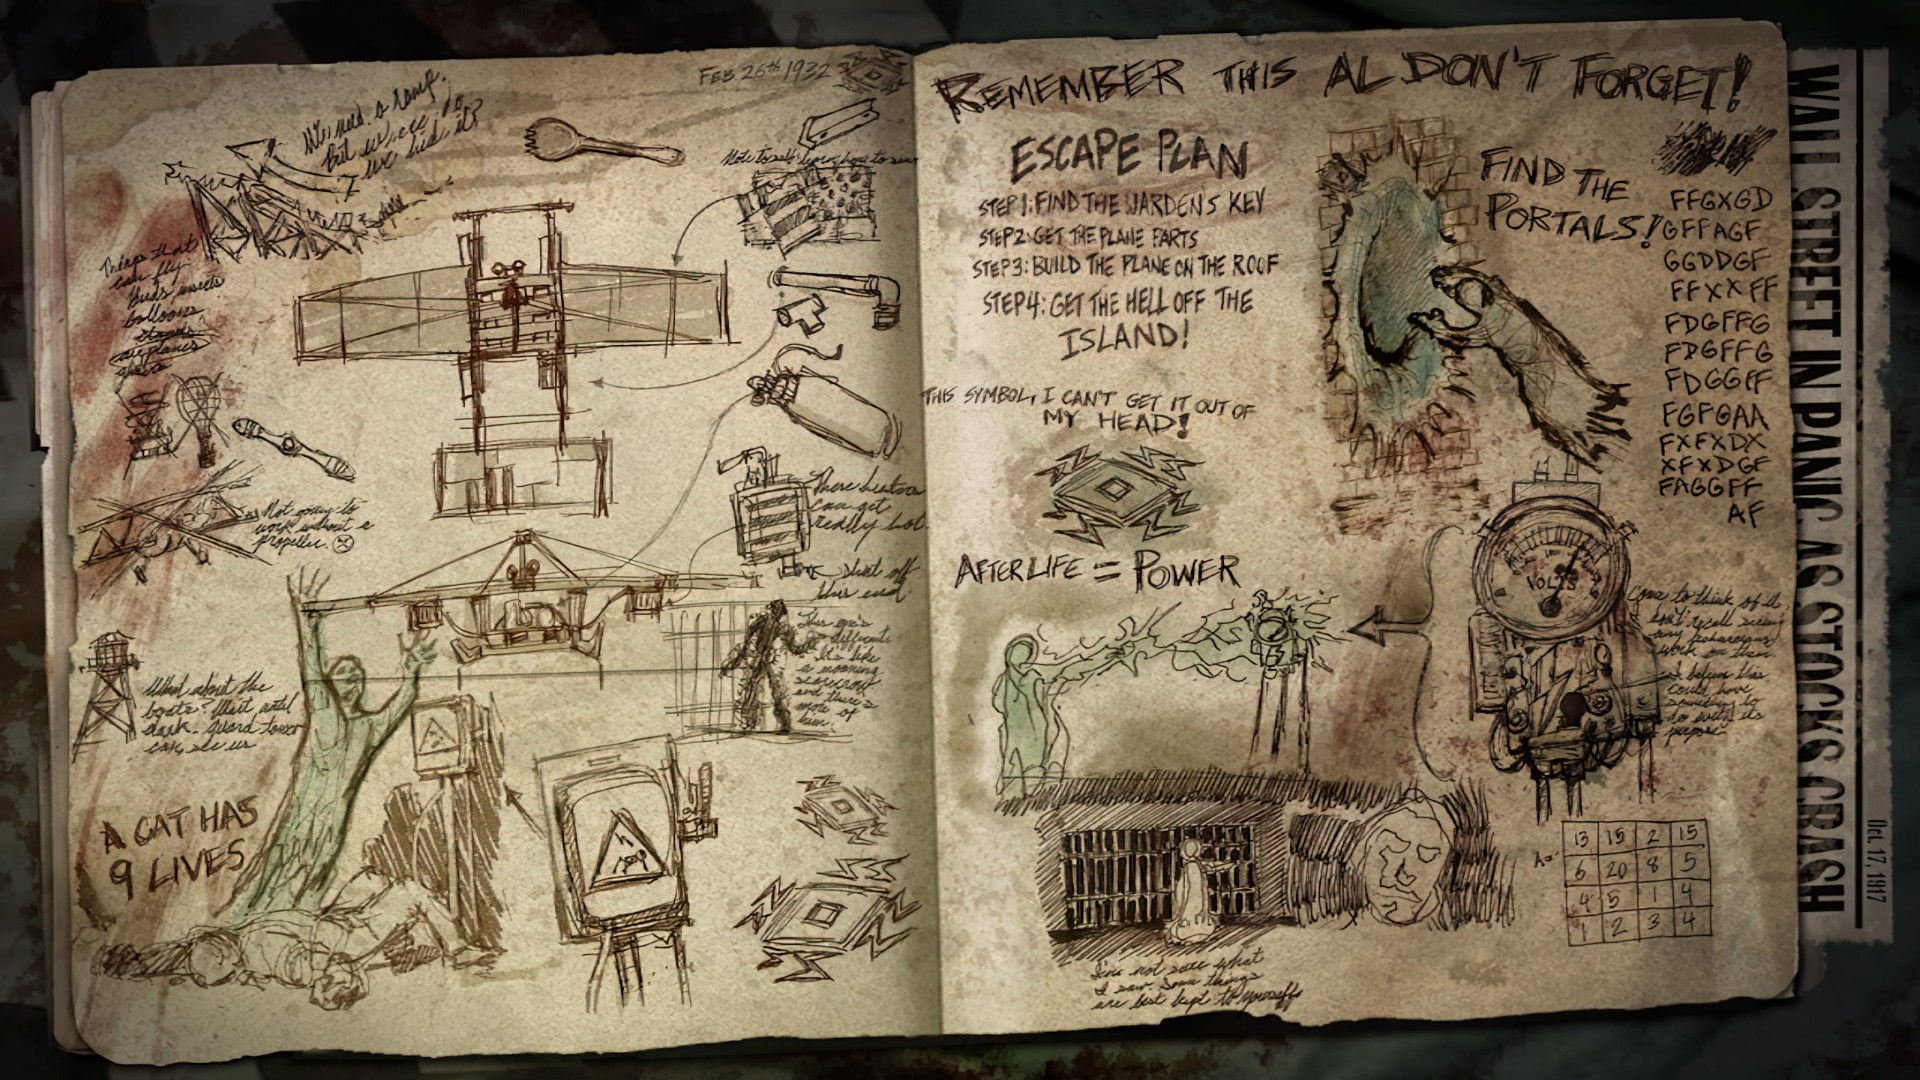 FEB 26th 1932
We need a ramp.
But where do
we hide it?
Note to self learn how to sew
Things that
can fly
Birds insects
balloons
airplanes
Not going to
work without a
propeller.
These heaters
can get
really hot.
Shut off
this end.
This one's
different
It's like
a moaning
scarecrow
and there's
more of
them.
What about the
boats? Wait until
dark. Guard tower
can see us
A CAT HAS
9 LIVES
REMEMBER THIS AL DON'T FORGET!
ESCAPE PLAN
STEP 1: FIND THE WARDENS KEY
STEP 2: GET THE PLANE PARTS
STEP 3: BUILD THE PLANE ON THE ROOF
STEP 4: GET THE HELL OFF THE
ISLAND!
THIS SYMBOL, I CAN'T GET IT OUT OF
MY HEAD!
AFTERLIFE = POWER
FIND THE
PORTALS!
FFGXGD
GFFAGF
GGDDGF
FFXXFF
FDGFFG
FDGFFG
FDGGFF
FGFGAA
FXFXDX
XFXDGF
FAGGFF
AF
VOLTS
Come to think of it,
don't recall seeing
any
work on them
I believe this
could have
something to
do with its
purpose
A=
13 15 2 15
6 20 8 5
4 5 1 4
1 2 3 4
I'm not sure what
I saw. Some things
are best kept to yourself
WALL STREET IN PANIC AS STOCKS CRASH
Oct. 17, 1917